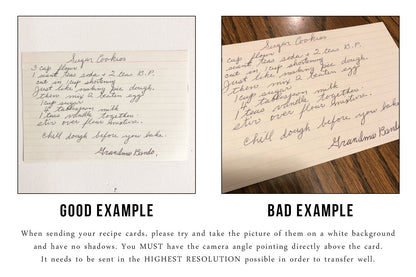 Sugar Cookies
3 cup flour
1 scant teas soda + 2 teas B.P.
cut in 1 cup shortening
Just like making pie dough.
then mix a beaten egg
1 cup sugar
4 tablespoon milk
1 teas vanilla together.
stir over flour mixture.
Chill dough before you bake.
Grandma Bando.
Sugar Cookies
3 cup flour
1 scant teas soda + 2 teas B.P.
cut in 1 cup shortening
Just like making pie dough.
then mix a beaten egg
1 cup sugar
4 tablespoon milk
1 teas vanilla together.
stir over flour mixture.
Chill dough before you bake
Grandma Bando.
GOOD EXAMPLE
BAD EXAMPLE
When sending your recipe cards, please try and take the picture of them on a white background
and have no shadows. You MUST have the camera angle pointing directly above the card.
It needs to be sent in the HIGHEST RESOLUTION possible in order to transfer well.